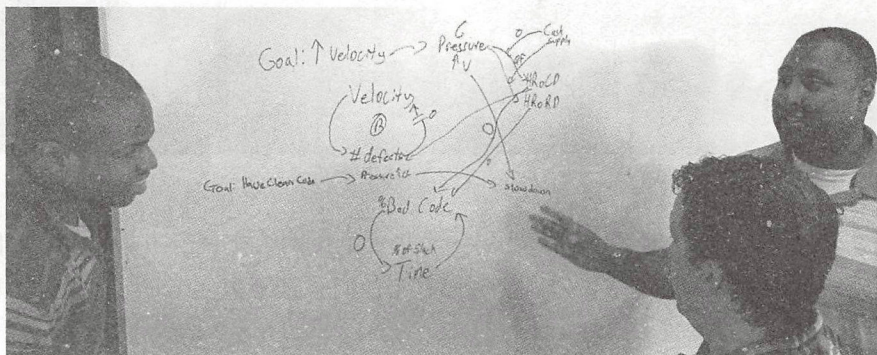 Goal: ↑ Velocity
Pressure
↑ V
O
Cash
Supply
HRoCD
HRoRD
Velocity
O
B
# defects
O
Goal: Have Clean Code
slowdown
%Bad Code
O
% of Slack
Time